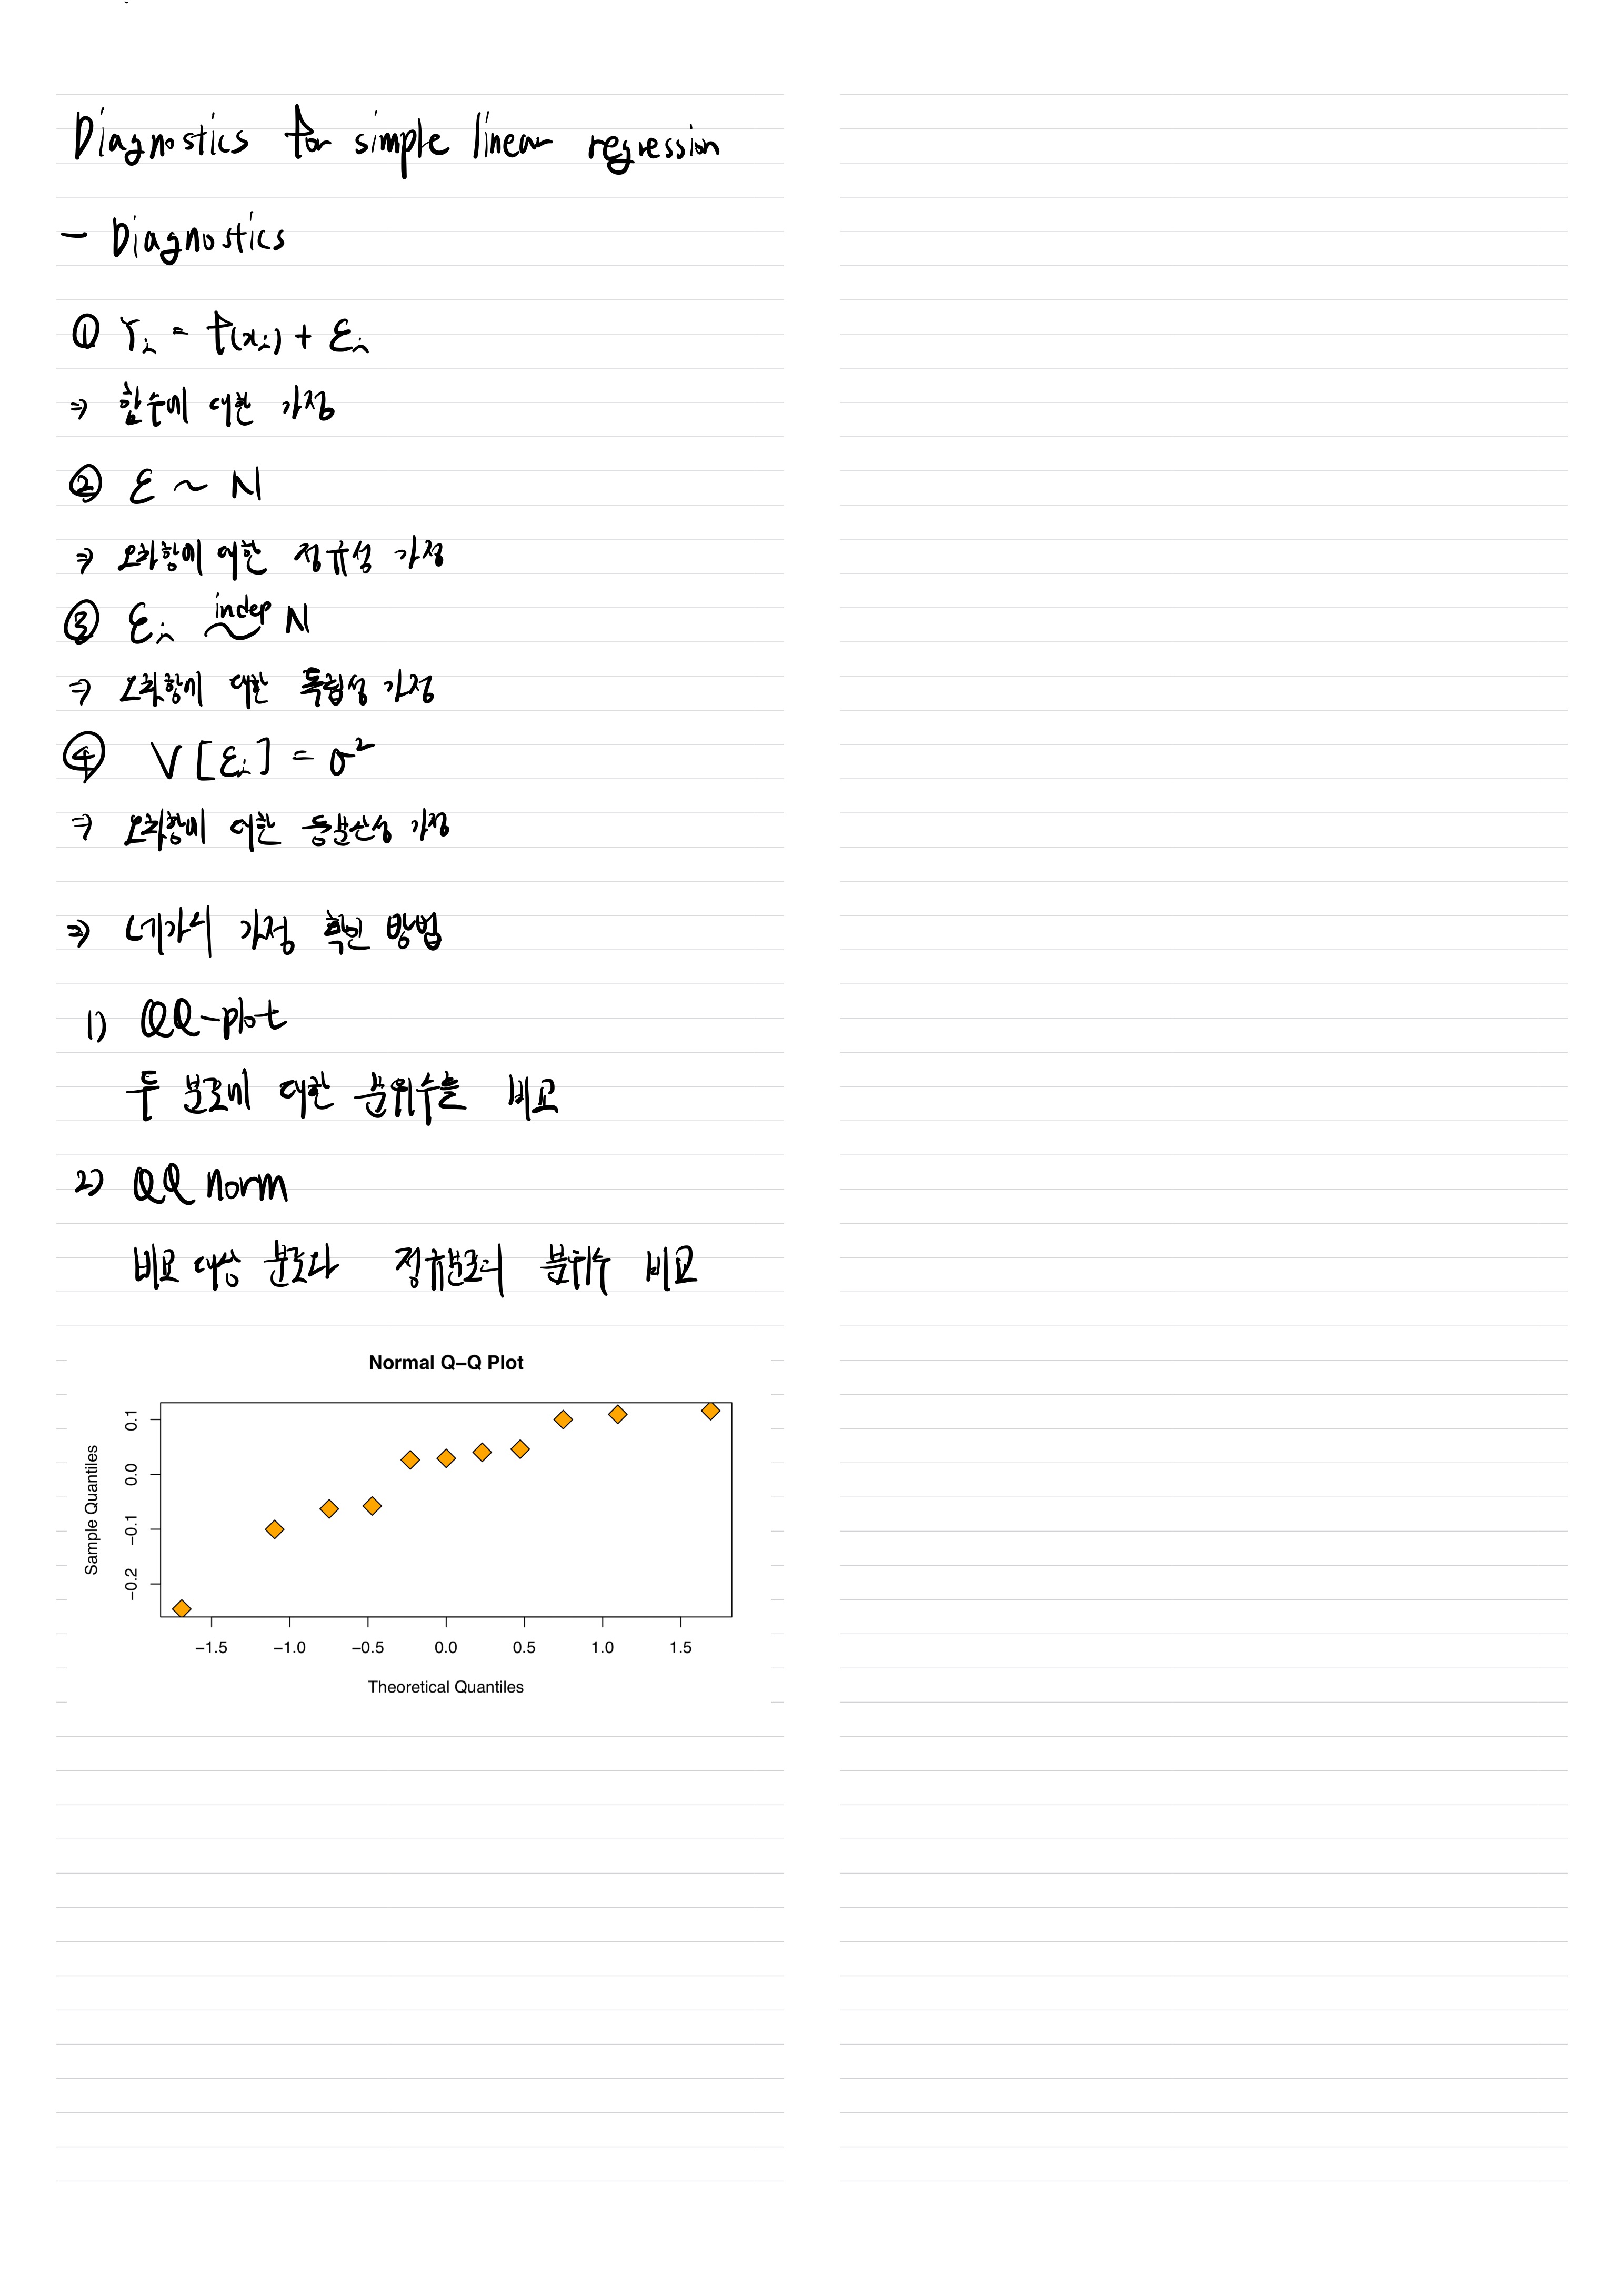 Diagnostics for simple linear regression
- Diagnostics
① Yᵢ = f(xᵢ) + εᵢ
⇒ 함수에 대한 가정
② ε ~ N
⇒ 오차항에 대한 정규성 가정
③ εᵢ indep ~ N
⇒ 오차항에 대한 독립성 가정
④ V[εᵢ] = σ²
⇒ 오차항에 대한 등분산성 가정
⇒ 네가지 가정 확인 방법
1) QQ-plot
두 분포에 대한 분위수를 비교
2) QQ norm
비교 대상 분포와 정규분포의 분위수 비교
Normal Q−Q Plot
Sample Quantiles
0.1
0.0
−0.1
−0.2
−1.5 −1.0 −0.5 0.0 0.5 1.0 1.5
Theoretical Quantiles